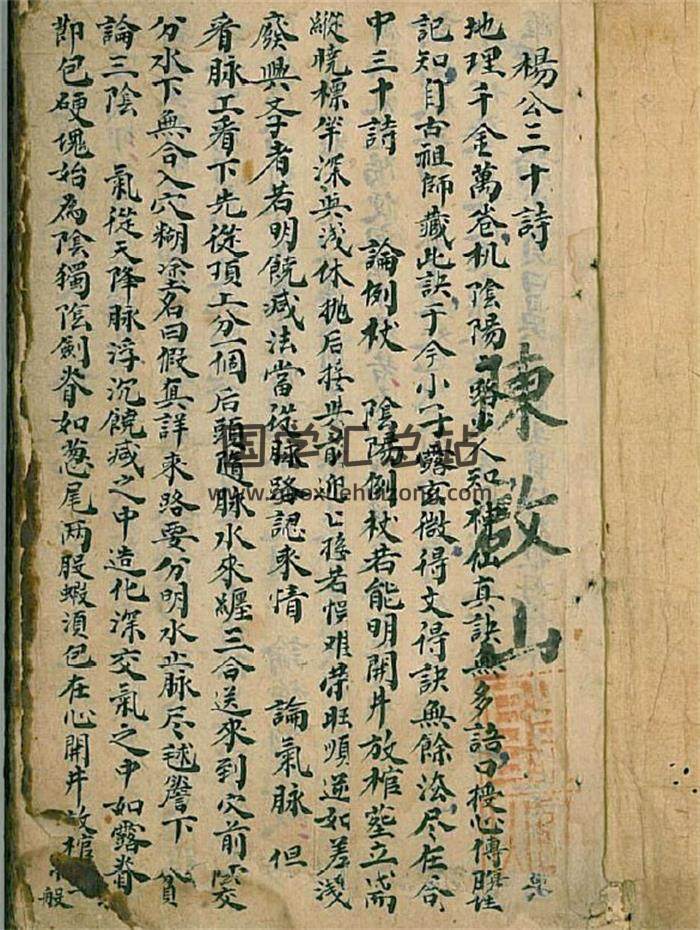 楊公三十詩
陳啟山
地理千金萬卷机陰陽一路少人知神仙真訣無多語口授心傳賢
記知自古祖師藏此訣于今小子露玄微得文得訣無餘法尽在合
中三十詩 論倒杖 陰陽倒杖若能明開井放棺塟立
縱曉標竿深與淺休抛后接與前迎迎接若悮难荣旺順逆如差淺
廢興文子者若明饒减法當從脉路認來情 論氣脉 但
看脉工看下先從頂上分一個后頭隨脉水來纏三合送來到穴前交
分水下無合入穴糊塗名曰假真詳來路要分明水止脉尽毬簷下
論三陰 氣從天降脉浮沉饒减之中造化深交氣之中如露脊
節包硬塊始為陰獨陰劍脊如葱尾两股蝦湏包在心開井放棺一般
国学汇总站
www.guoxuehuizong.com